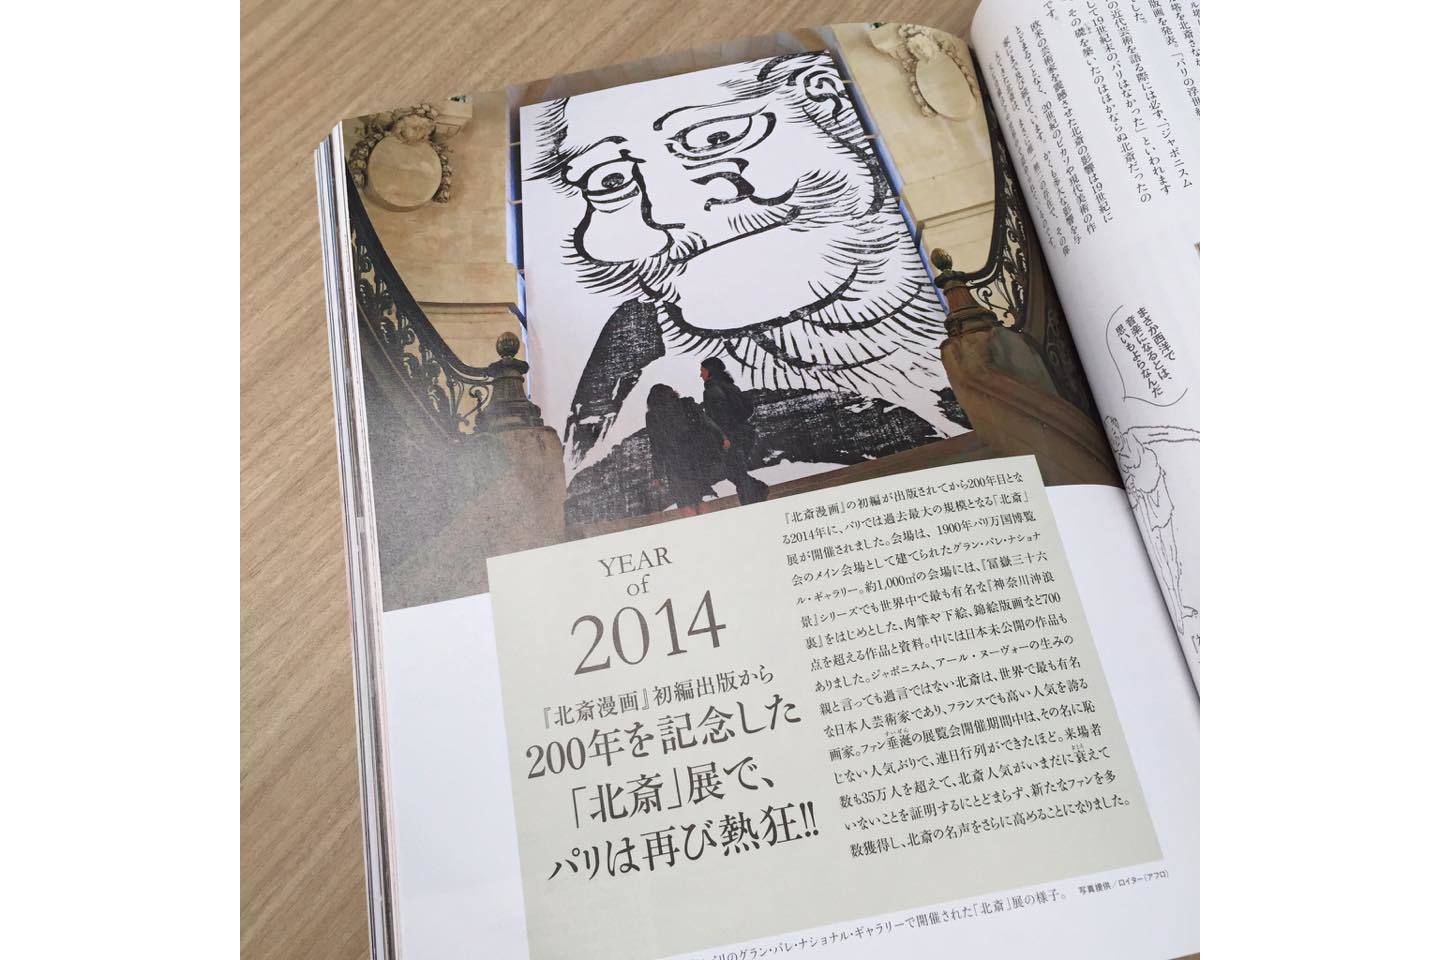 版画を発表。「パリの浮世絵
の近代芸術を語る際には必ず、「ジャポニスム
して19世紀末のパリはなかった」といわれます
その礎を築いたのはほかならぬ北斎だったの
です。
欧米の芸術家を震撼させた北斎の影響は19世紀に
とどまることなく、20世紀のピカソや現代美術の作
まさか西洋で
音楽になるとは、
思いもよらなんだ
YEAR
of
2014
『北斎漫画』初編出版から
200年を記念した
「北斎」展で、
パリは再び熱狂!!
『北斎漫画』の初編が出版されてから200年目とな
る2014年に、パリでは過去最大の規模となる「北斎」
展が開催されました。会場は、1900年パリ万国博覧
会のメイン会場として建てられたグラン・パレ・ナショナ
ル・ギャラリー。約1,000㎡の会場には、『冨嶽三十六
景』シリーズでも世界中で最も有名な『神奈川沖浪
裏』をはじめとした、肉筆や下絵、錦絵版画など700
点を超える作品と資料。中には日本未公開の作品も
ありました。ジャポニスム、アール・ヌーヴォーの生みの
親と言っても過言ではない北斎は、世界で最も有名
な日本人芸術家であり、フランスでも高い人気を誇る
画家。ファン垂涎の展覧会開催期間中は、その名に恥
じない人気ぶりで、連日行列ができたほど。来場者
数も35万人を超えて、北斎人気がいまだに衰えて
いないことを証明するにとどまらず、新たなファンを多
数獲得し、北斎の名声をさらに高めることになりました。
パリのグラン・パレ・ナショナル・ギャラリーで開催された「北斎」展の様子。 写真提供／ロイター（アフロ）